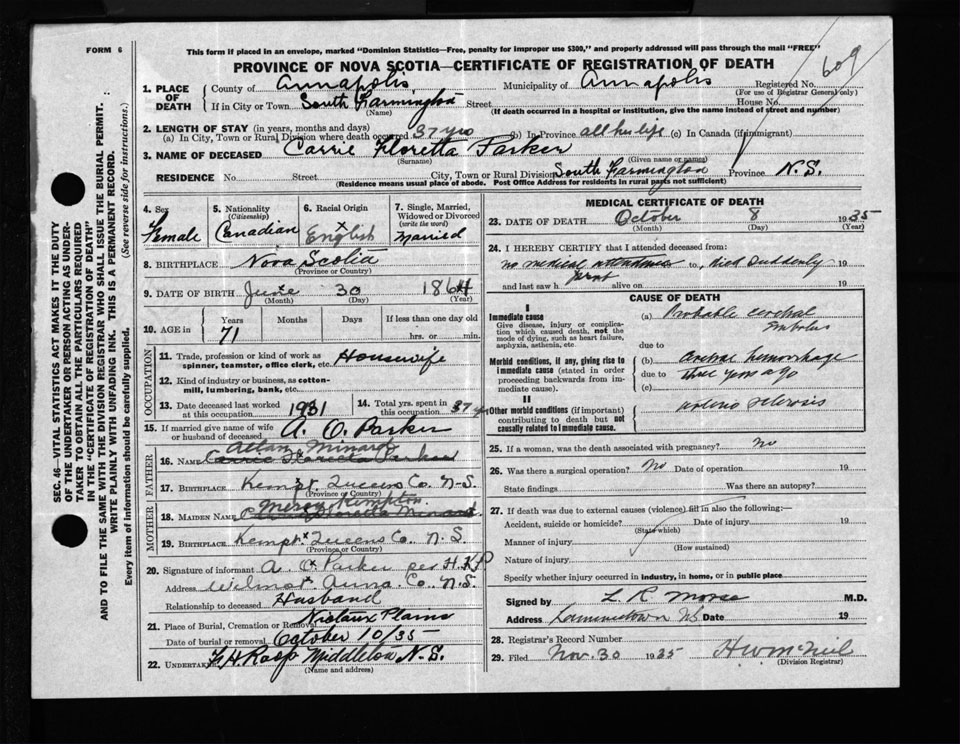 FORM 6
This form if placed in an envelope, marked "Dominion Statistics—Free, penalty for improper use $300," and properly addressed will pass through the mail "FREE"
PROVINCE OF NOVA SCOTIA—CERTIFICATE OF REGISTRATION OF DEATH
609
SEC. 46—VITAL STATISTICS ACT MAKES IT THE DUTY
OF THE UNDERTAKER OR PERSON ACTING AS UNDER-
TAKER TO OBTAIN ALL THE PARTICULARS REQUIRED
IN THE "CERTIFICATE OF REGISTRATION OF DEATH"
AND TO FILE THE SAME WITH THE DIVISION REGISTRAR WHO SHALL ISSUE THE BURIAL PERMIT.
WRITE PLAINLY WITH UNFADING INK. THIS IS A PERMANENT RECORD.
Every item of information should be carefully supplied. (See reverse side for instructions.)
1. PLACE OF DEATH
County of Annapolis Municipality of Annapolis Registered No.
(For use of Registrar General only)
If in City or Town South Farmington Street House No.
(Name) (If death occurred in a hospital or institution, give the name instead of street and number)
2. LENGTH OF STAY (in years, months and days)
(a) In City, Town or Rural Division where death occurred 37 yrs (b) In Province all her life (c) In Canada (if immigrant)
3. NAME OF DECEASED Carrie Floretta Parker
(Surname) (Given name or names)
RESIDENCE No. Street City, Town or Rural Division South Farmington Province N.S.
(Residence means usual place of abode. Post Office Address for residents in rural parts not sufficient)
4. Sex Female
5. Nationality (Citizenship) Canadian
6. Racial Origin English
7. Single, Married, Widowed or Divorced (write the word) Married
8. BIRTHPLACE Nova Scotia
(Province or Country)
9. DATE OF BIRTH June 30 1864
(Month) (Day) (Year)
10. AGE in Years Months Days If less than one day old
71 hrs. or min.
OCCUPATION
11. Trade, profession or kind of work as spinner, teamster, office clerk, etc. Housewife
12. Kind of industry or business, as cotton-mill, lumbering, bank, etc.
13. Date deceased last worked at this occupation 1931
14. Total yrs. spent in this occupation 37 yrs
15. If married give name of wife or husband of deceased A. O. Parker
FATHER
Allan Minard
16. NAME Carrie Floretta Parker
17. BIRTHPLACE Kempt Queens Co. N.S.
(Province or Country)
MOTHER
Mercy Kempton
18. MAIDEN NAME Carrie Floretta Minard
19. BIRTHPLACE Kempt Queens Co. N.S.
(Province or Country)
20. Signature of informant A. O. Parker per H.K.P
Address Wilmot Anna. Co. N.S.
Relationship to deceased Husband
21. Place of Burial, Cremation or Removal Nictaux Plains
Date of burial or removal October 10/35
22. UNDERTAKER F.H. Roop Middleton N.S.
(Name and address)
MEDICAL CERTIFICATE OF DEATH
23. DATE OF DEATH October 8 1935
(Month) (Day) (Year)
24. I HEREBY CERTIFY that I attended deceased from:
no medical attendance to died suddenly 19
and last saw h alive on 19
CAUSE OF DEATH
I
Immediate cause
Give disease, injury or complication which caused death, not the mode of dying, such as heart failure, asphyxia, asthenia, etc.
(a) Probable cerebral embolus
due to
Morbid conditions, if any, giving rise to immediate cause (stated in order proceeding backwards from immediate cause).
(b) cerebral hemorrhage
due to three years ago
(c)
II
Other morbid conditions (if important) contributing to death but not causally related to immediate cause.
arterio sclerosis
25. If a woman, was the death associated with pregnancy? no
26. Was there a surgical operation? No Date of operation 19
State findings Was there an autopsy?
27. If death was due to external causes (violence) fill in also the following:—
Accident, suicide or homicide? Date of injury 19
(State which)
Manner of injury
(How sustained)
Nature of injury
Specify whether injury occurred in industry, in home, or in public place
Signed by L. R. Morse M.D.
Address Lawrencetown NS Date 19
28. Registrar's Record Number
29. Filed Nov. 30 1935 H W McNeil
(Division Registrar)